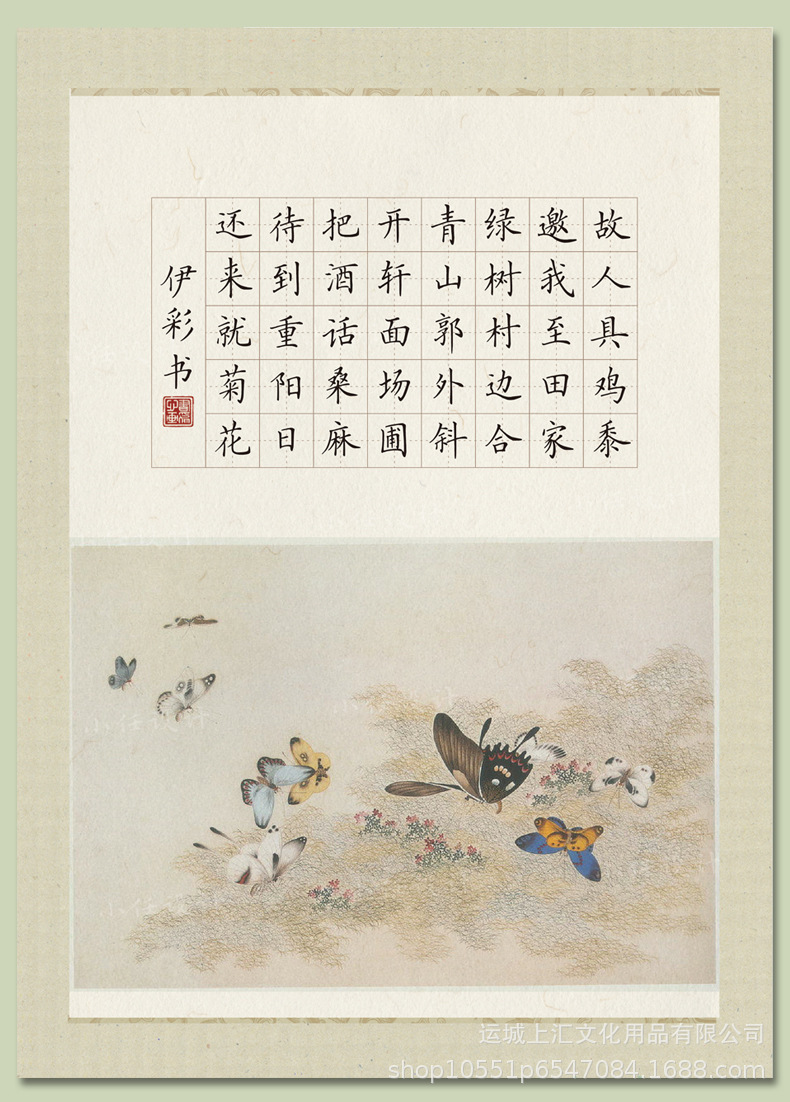 故人具鸡黍
邀我至田家
绿树村边合
青山郭外斜
开轩面场圃
把酒话桑麻
待到重阳日
还来就菊花
伊彩书
运城上汇文化用品有限公司
shop10551p6547084.1688.com